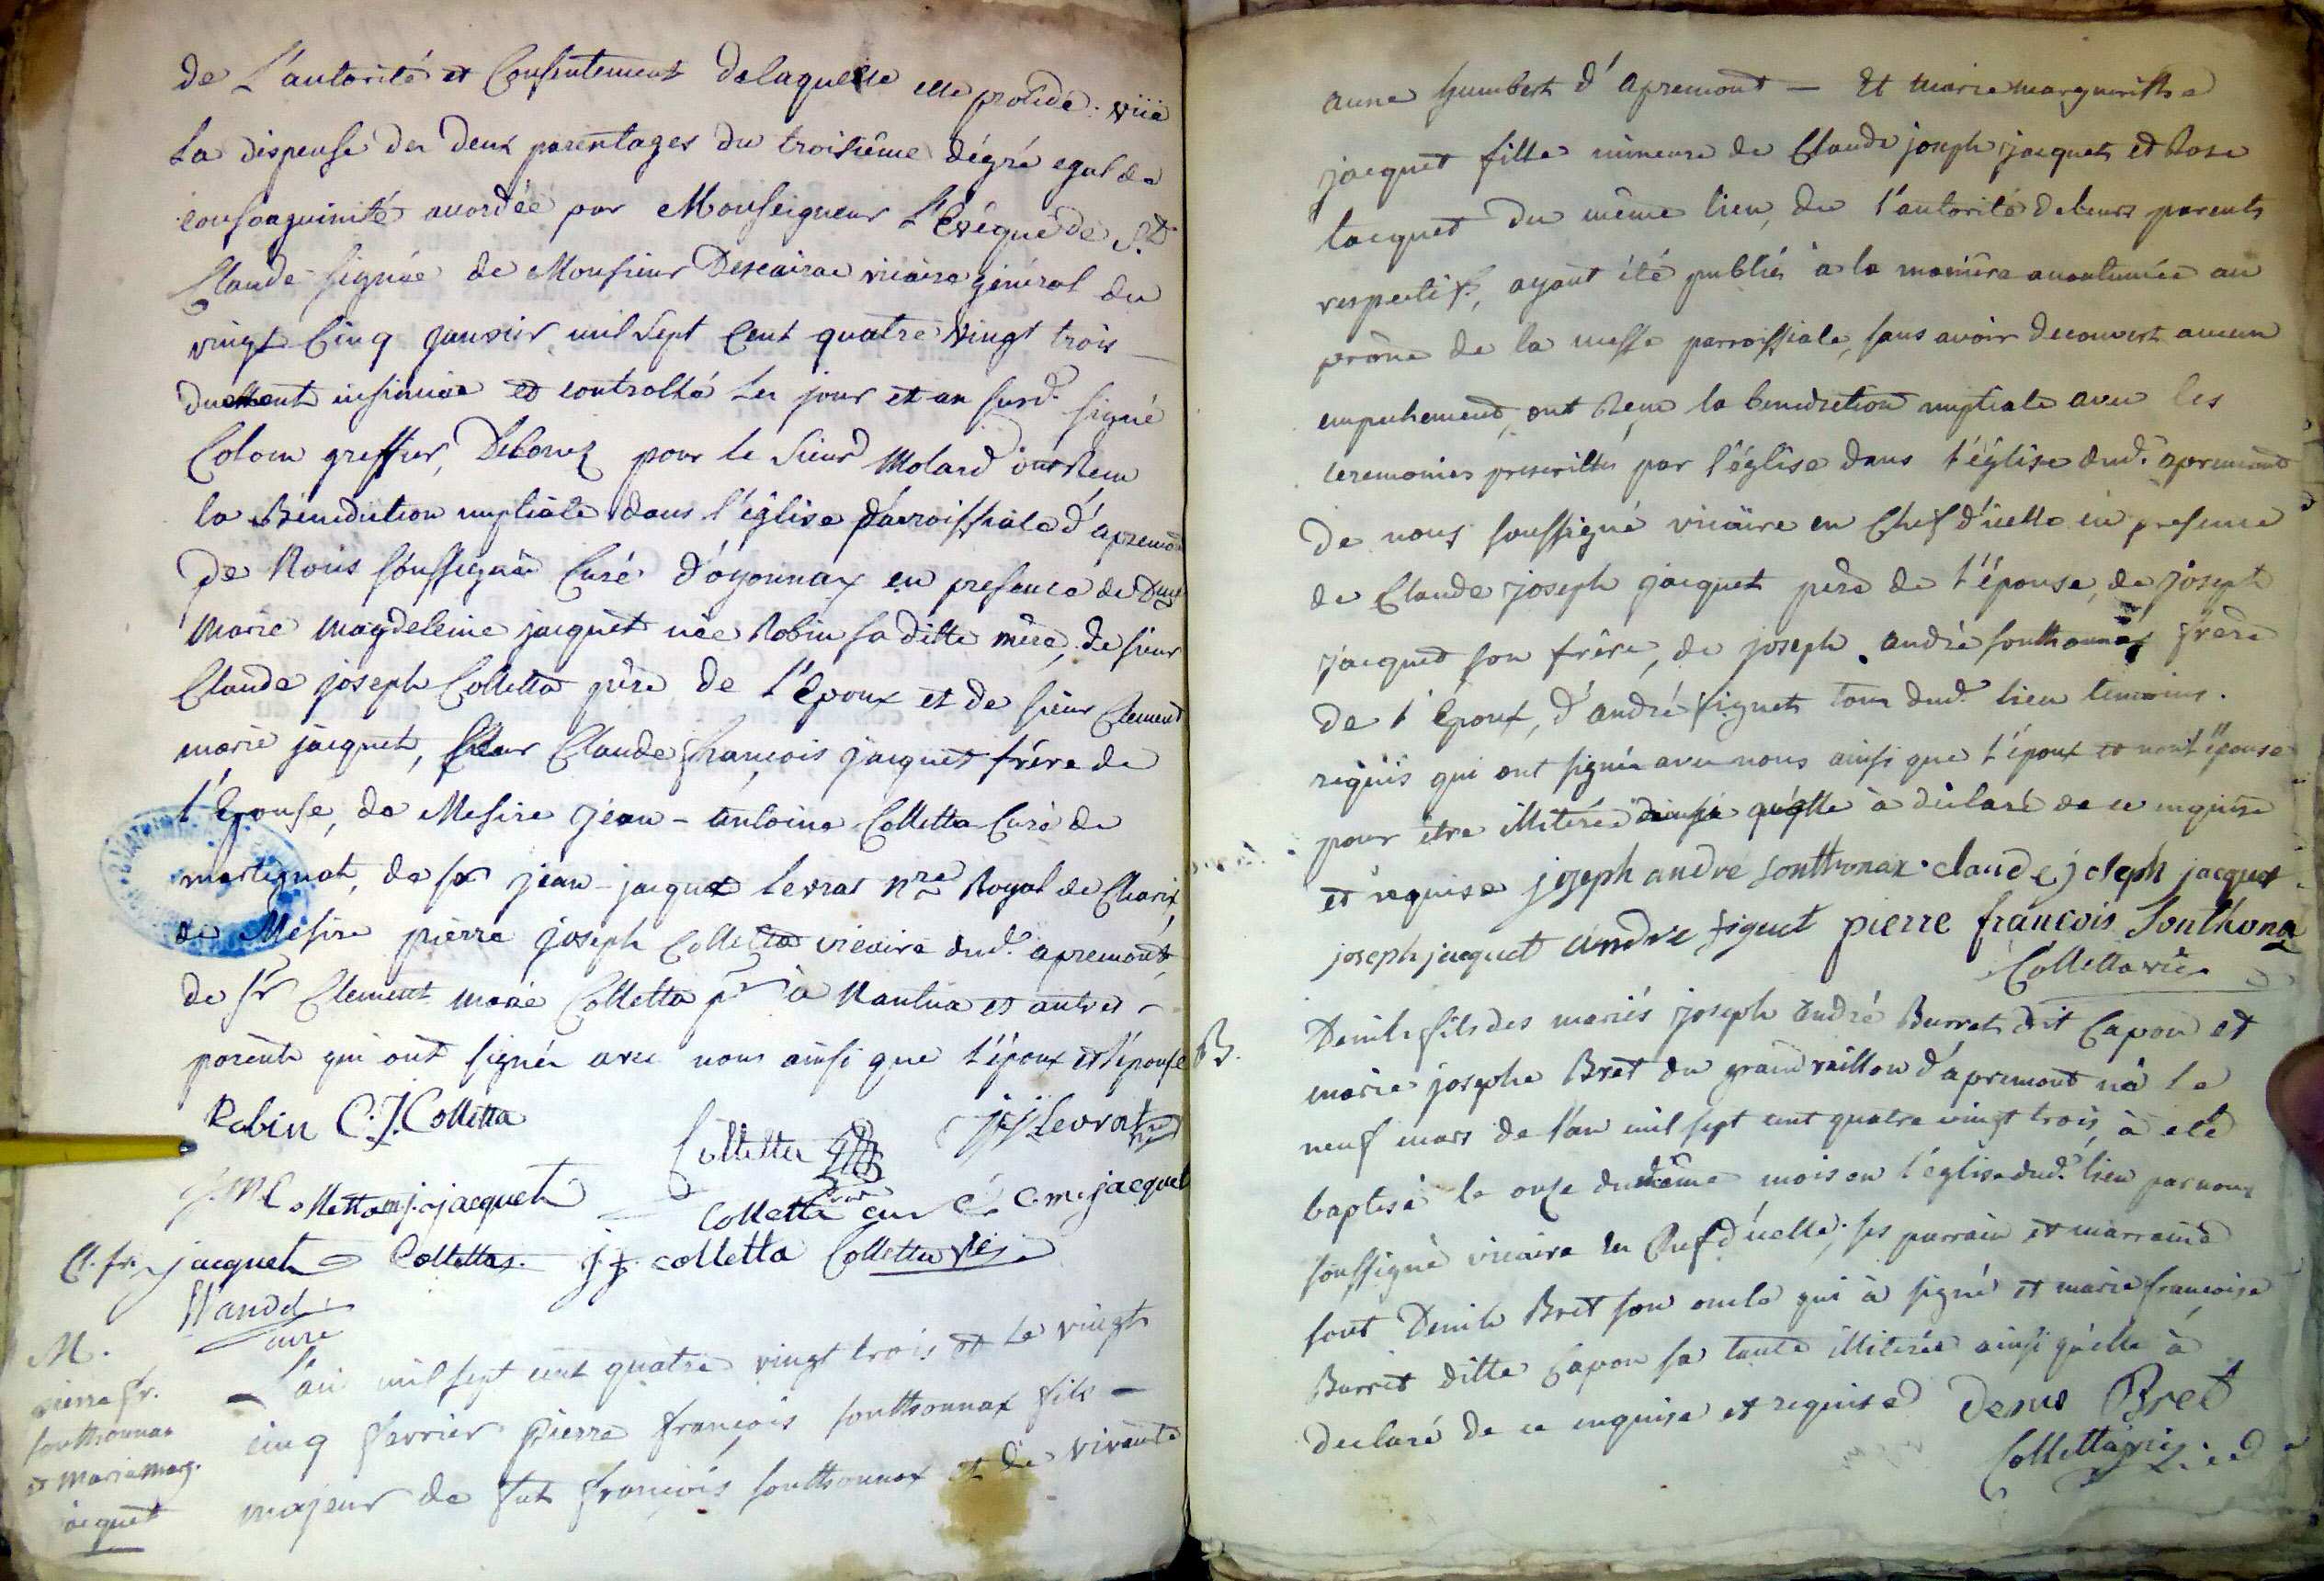 de L'autorité et Consentement delaquelle elle procède. vüe
La dispense des deux parentages du troisième dégré egal de
consanguinité accordée par Monseigneur L'Evêque de St
Claude signée de Monsieur Descairac vicaire général du
vingt Cinq janvier mil Sept Cent quatre vingt trois
duement insinuée et controllé Les jour et an susd. signé
Colom greffier, Delorez pour le Sieur Molard ont Reçu
la Bénédiction nuptiale dans l'église Parroissiale d'apremont
de Nous soussigné Curé d'oyonnax en presence de Dme
Marie Magdeleine jacquet née Robin sa ditte mère, de sieur
Claude joseph Colletta père de l'Epoux et de sieur Clement
marie jacquet, Claude François jacquet frère de
l'Epouse, de Messire jean-antoine Colletta Curé de
martignat, de sr jean-jacque Levrat nre Royal de Charix,
de Messire pierre joseph Colletta vicaire dud. apremont,
de Sr Clement marie Colletta pr à Nantua et autres
parents qui ont signés avec nous ainsi que l'époux et l'épouse
Robin C.J. Colletta
Colletta jj Levrat
J.M. Colletta m.j. jacquet
Colletta curé c. m. jacquet
Cl. fr. jacquet Colletta j.j. colletta Colletta vic
curé
M.
pierre fr.
sonthonnax
et Marie Marg.
jacquet
L'an mil sept cent quatre vingt trois et le vingt
cinq fevrier Pierre françois sonthonnax fils
majeur de fut françois sonthonnax et de vivante
anne humbert d'apremont — Et Marie margueritte
jacquet fille mineure de Claude joseph jacquet et Rose
jacquet du même lieu, de l'autorité de leurs parents
respectifs, ayant été publiés à la manière accoutumée au
prône de la messe parroissiale, sans avoir decouvert aucun
empechement, ont Reçu la benediction nuptiale avec les
ceremonies prescrittes par l'église dans l'église dud. apremont
de nous soussigné vicaire en Chef d'icelle en presence
de Claude joseph jacquet père de l'épouse, de joseph
jacquet son frère, de joseph andré sonthonnax frere
de l'Epoux, d'andré figuet tous dud. lieu temoins
requis qui ont signés avec nous ainsi que l'époux et non l'épouse
pour être illiterée ainsi qu'elle à déclaré de ce enquise
et requise joseph andre sonthonax claude joseph jacquet
joseph jacquet andre figuet pierre francois Sonthonax
Colletta vic
B.
Denis fils des mariés joseph andré Burret dit Capon et
marie josephe Bret du grand vaillon d'apremont né le
neuf mars de l'an mil sept cent quatre vingt trois, à été
baptisé le onze du même mois en l'église dud. lieu par nous
soussigné vicaire en Chef d'icelle; ses parrain et marraine
sont Denis Bret son oncle qui à signé et marie françoise
Burret ditte Capon sa tante illiterée ainsi qu'elle à
declaré de ce enquise et requise Denis Bret
Colletta vic.